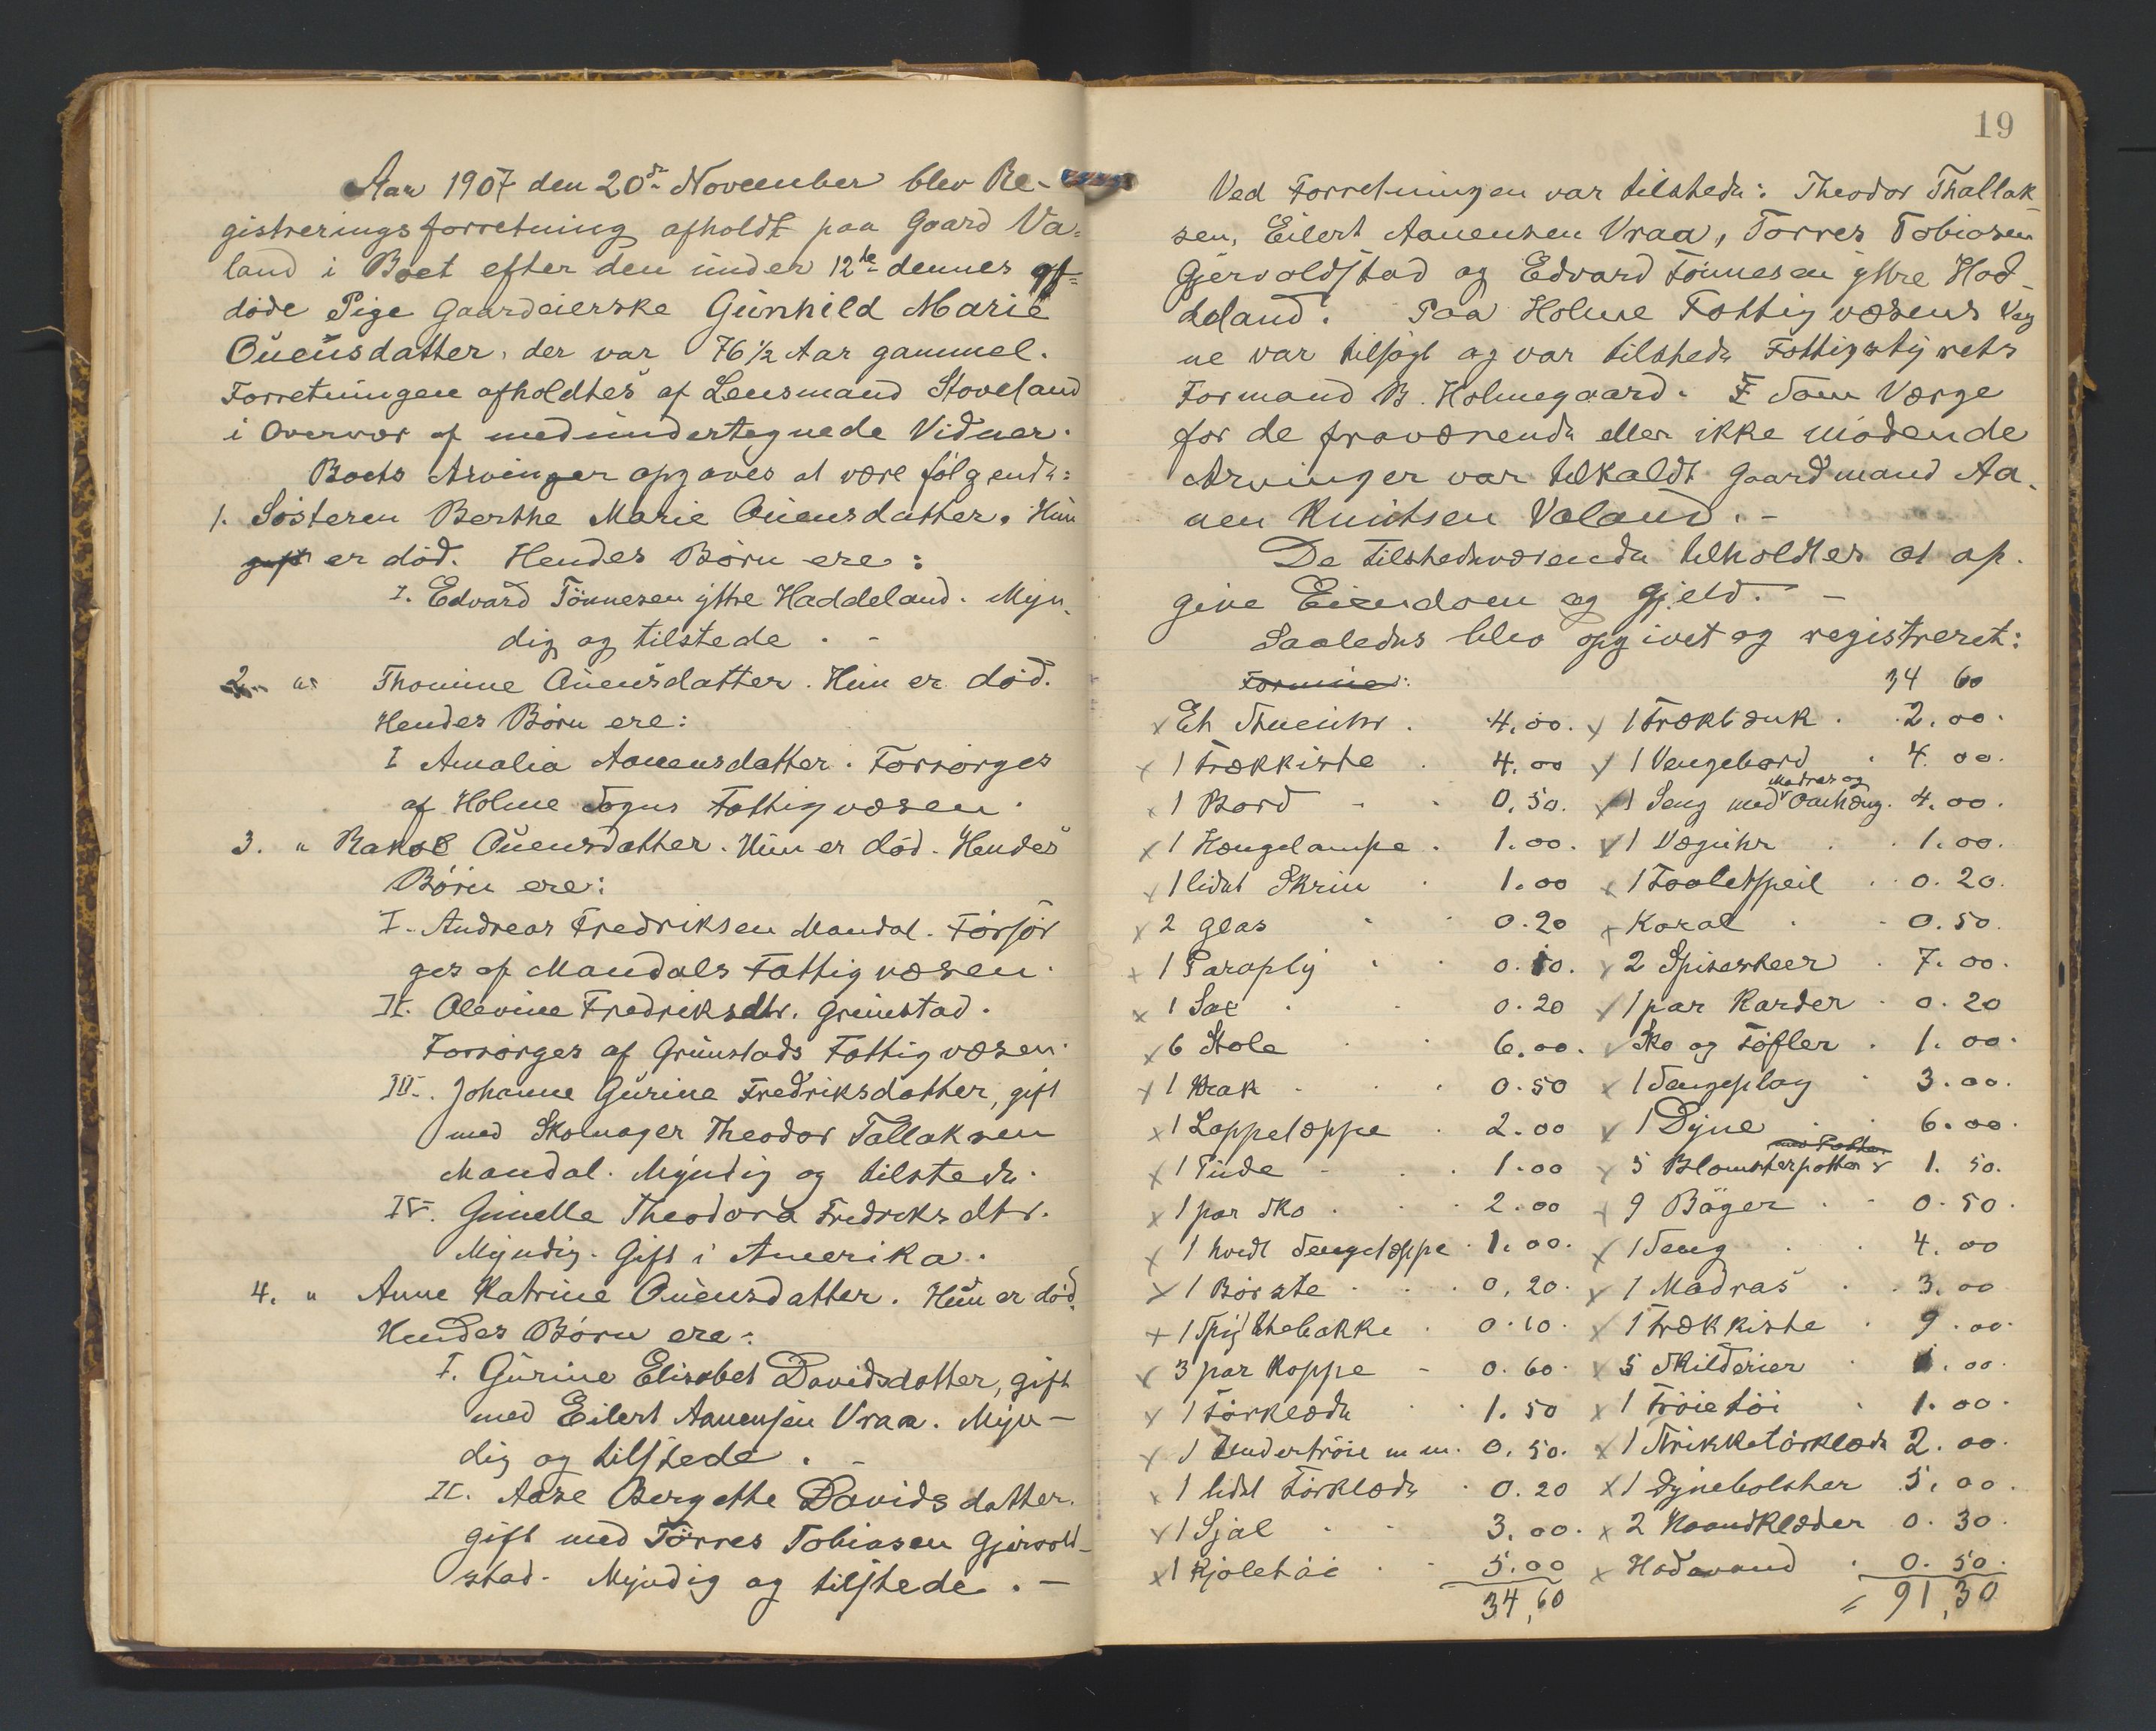 Aar 1907 den 20de November blev Re-
gistreringsforretning afholdt paa Gaard Va-
land i Boet efter den under 12te dennes af-
døde Pige Gaardeierske Gunhild Marie
Ouensdatter, der var 76½ Aar gammel.
Forretningen afholdtes af Lensmand Stoveland
i Overvær af medundertegnede Vidner.
Boets Arvinger opgaves at være følgende:
1. Søsteren Berthe Marie Ouensdatter. Hun
gift er død. Hendes Børn ere:
I. Edvard Tønnesen yttre Haddeland. Myn-
dig og tilstede. -
2. " Thomine Ouensdatter. Hun er død.
Hendes Børn ere:
I Amalia Aanensdatter. Forsørges
af Holme Sogns Fattigvæsen.
3. " Rakel Ouensdatter. Hun er død. Hendes
Børn ere:
I. Andreas Fredriksen Mandal. Forsør
ges af Mandals Fattigvæsen.
II. Olevine Fredriksdtr. Grimstad.
Forsørges af Grimstads Fattigvæsen.
III. Johanne Gurine Fredriksdatter, gift
med Skomager Theodor Tallaksen
Mandal. Myndig og tilstede.
IV. Gunelle Theodora Fredriksdtr.
Myndig. Gift i Amerika.
4. " Anne Katrine Ouensdatter. Hun er død.
Hendes Børn ere:
I. Gurine Elisabet Davidsdatter, gift
med Eilert Aanensen Vraa. Myn-
dig og tilstede. -
II. Aase Bergethe Davidsdatter.
gift med Tørres Tobiasen Gjervold-
stad. Myndig og tilstede. -
19
Ved Forretningen var tilstede: Theodor Thallak-
sen, Eilert Aanensen Vraa, Tørres Tobiasen
Gjervoldstad og Edvard Tønnesen yttre Had-
deland. Paa Holme Fattigvæsens Veg
ne var tilsagt og var tilstede Fattigstyrets
Formand B. Holmegaard. F Som Værge
for de fraværende eller ikke mødende
Arvinger var tilkaldt Gaardmand Aa-
nen Knutsen Valand. -
De tilstedeværende tilholdtes at op-
give Eiendom og Gjeld. -
Saaledes blev opgivet og registreret:
Formue: 34 60
x Et Stueuhr . 4.00. x 1 Trækbænk . 2.00.
x 1 Trækkiste . 4.00 x 1 Vengebord . 4.00.
Madras og
x 1 Bord - . 0.50. x 1 Seng med Omhæng. 4.00.
x 1 Hængelampe . 1.00. x 1 Væguhr . 1.00.
x 1 lidet Skrin . 1.00 x 1 Toaletspeil . 0.20.
x 2 Glas . 0.20 x Karal . 0.50.
x 1 Paraply . 0.10. x 2 Spiseskeer . 7.00.
x 1 Sax . 0.20 x 1 par Karder . 0.20
x 6 Stole . 6.00. x Sko og Tøfler . 1.00.
x 1 Krak . 0.50 x 1 Sengeplag . 3.00.
x 1 Lappetæppe . 2.00 x 1 Dyne . 6.00.
x 1 Pude - . 1.00 x 5 Blomsterpotter 1.50.
x 1 par Sko . 2.00 x 9 Bøger . 0.50.
x 1 hvidt Sengetæppe . 1.00. x 1 Seng . 4.00
x 1 Børste . 0.20. x 1 Madras . 3.00
x 1 Spyttebakke . 0.10. x 1 Trækkiste . 9.00.
x 3 par Koppe - 0.60. x 5 Skilderier . 1.00.
x 1 Tørklæde . 1.50 x 1 Trøietøi . 1.00.
x 1 Undertrøie m m. 0.50. x 1 Strikketørklæde 2.00.
x 1 lidet Tørklæde . 0.20 x 1 Dynebolster 5.00.
x 1 Sjal . 3.00. x 2 Haandklæder 0.30.
x 1 Kjoletøi . 5.00 x Hodevand . 0.50.
34,60 = 91,30